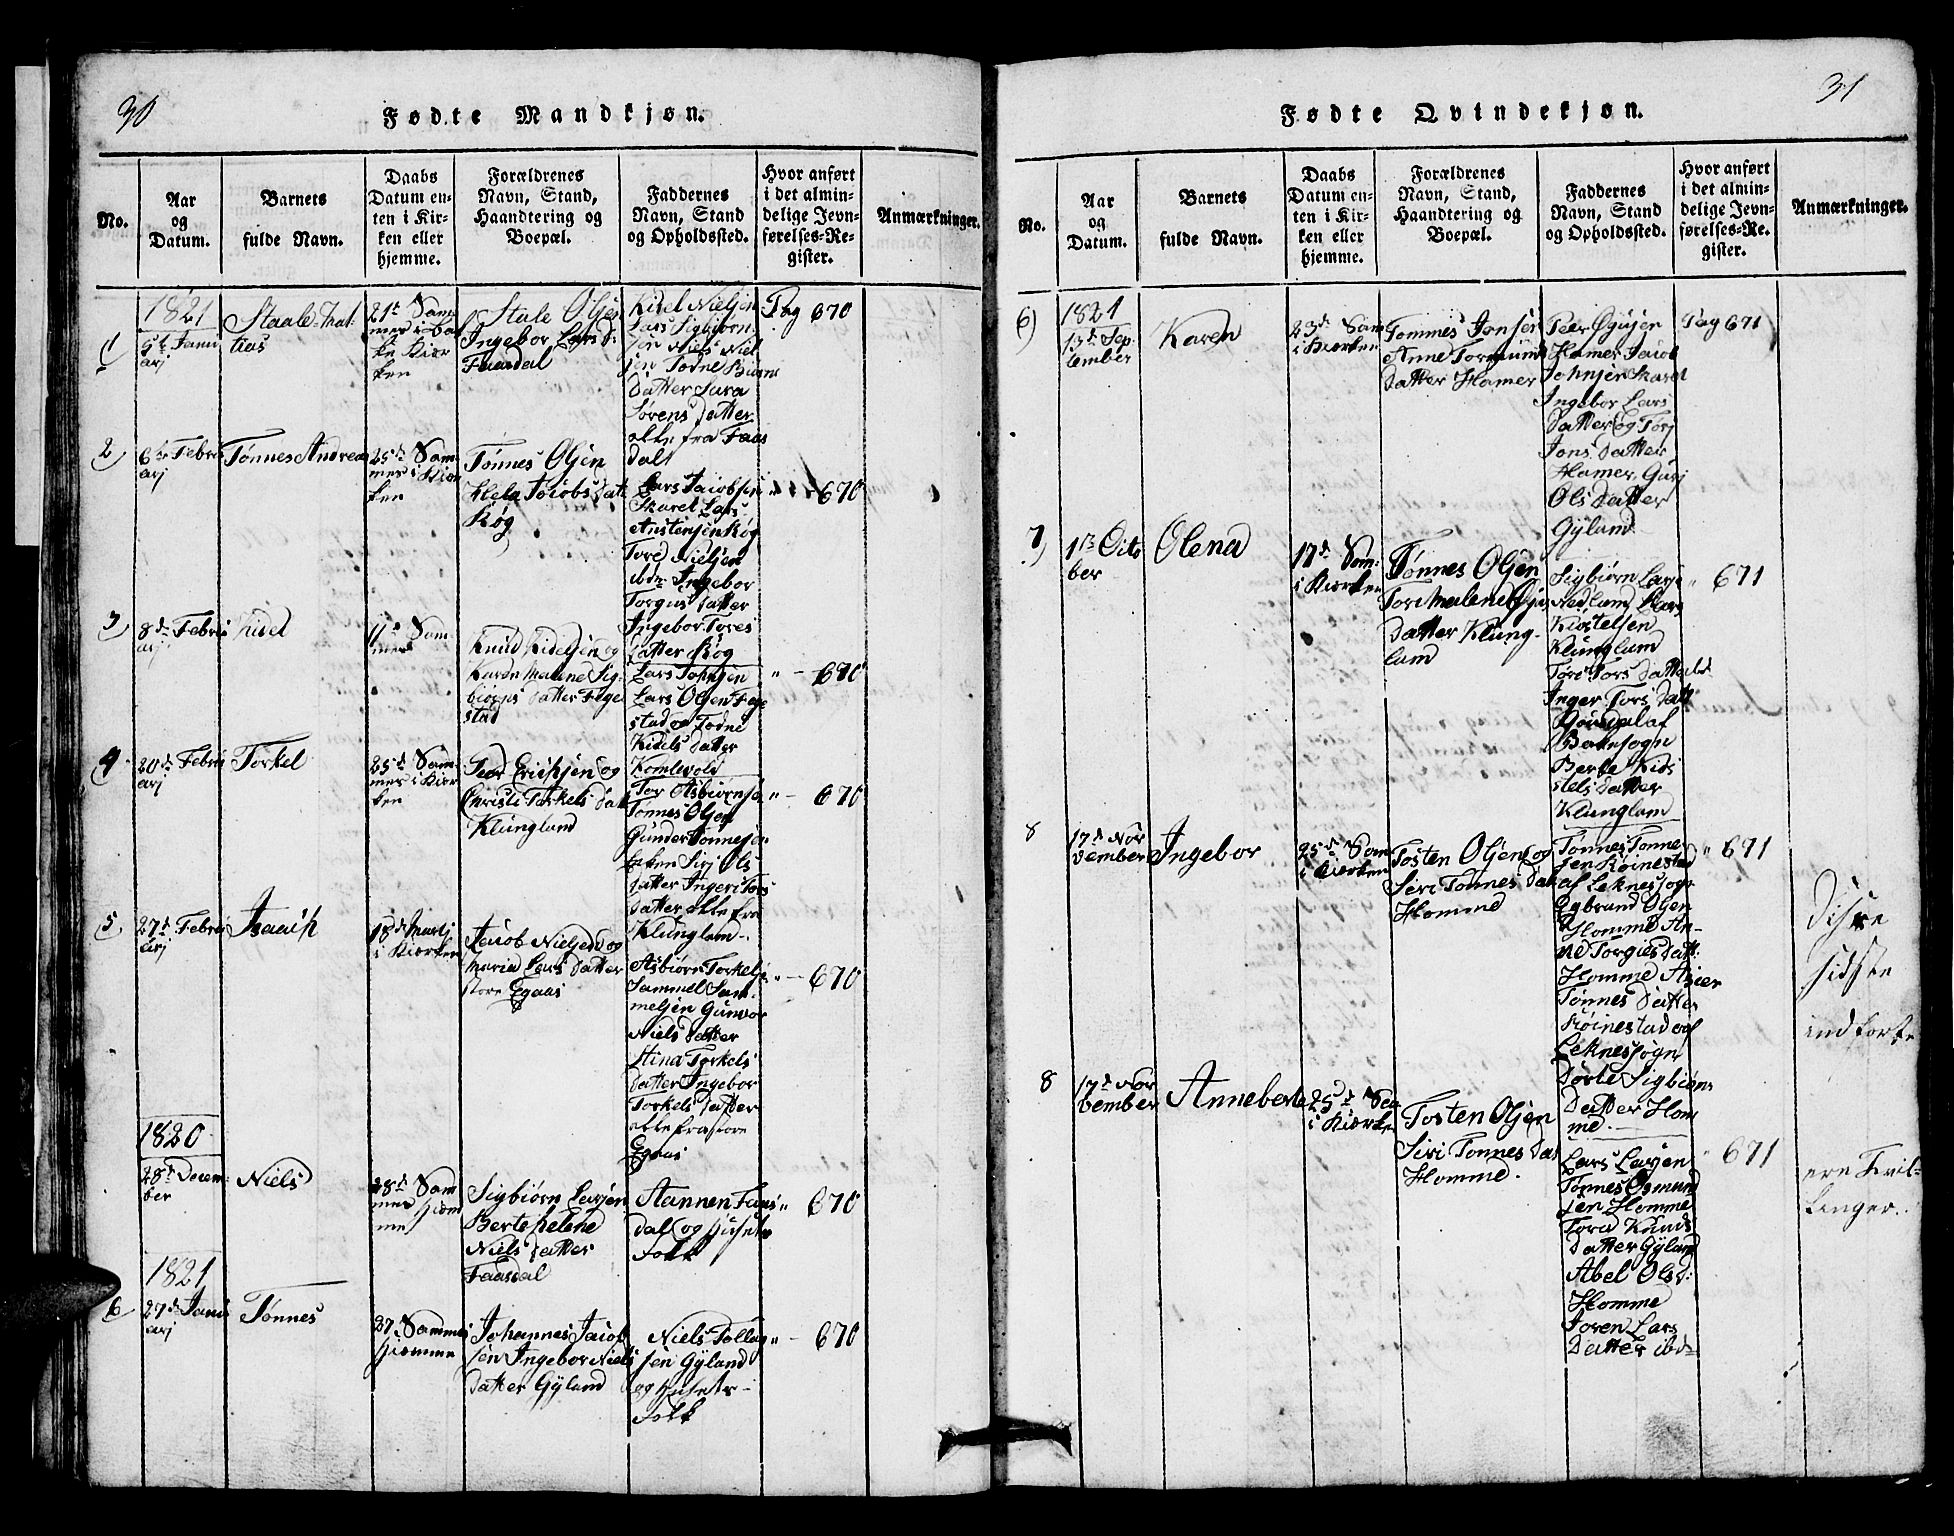 30
Fødte Mandkjøn.
No.
Aar
og
Datum.
Barnets
fulde Navn.
Daabs
Datum en-
ten i Kir-
ken eller
hjemme.
Forældrenes
Navn, Stand,
Haandtering og
Boepæl.
Faddernes
Navn, Stand
og Opholdssted.
Hvor anført
i det almin-
delige Jevn-
førelses-Re-
gister.
Anmærkninger.
1
1821
5t Janu
arj
Staale Mat-
tias
21d Sam-
mes
Kiør
ken
Stale Olsen
Ingebor Lars d:
Faasdal
Kidel Nielsen
Lars Sigbiørn
sen Niels Niel
sen Todne Biørns
Datter Sara
Sørens Datter
alle fra Faas
dal
Pag 670
2
6te Febru
arj
Tønnes Andreas
25d Sam-
mes i Kiør
ken
Tønnes Olsen
Hela Jacobs dat
Røg
Lars Jacobsen
Skarel Lars
Austensen Røg
Tore Nielsen
ibdn Ingebor
Torgius Datter
Ingebor Tores
Datter Røg
" 670
3
8d Febru
arj
Kidel
11d Sam-
mes
Knud Kidelsen og
Karen Malene Sig-
biørns Datter Fege
stad
Lars Johnsen
Lars Olsen Fege
stad og Todne
Kidels Datter
Komlevold
" - 670
4
20d Febru
arj
Torkel
25d Sam
mes i Kiør
ken
Peder Erichsen og
Christi Torkels dat
Klungland
Tor Asbiørnsen
Tønnes Olsen
Gunder Tønnesen
Sirj Ols
Datter Ingeri Tors
Datter alle fra
Klunglam
" - 670
5
27d Febru
arj
Isaach
18d Martj
i Kiørken
Jacob Nielsen og
Maria Lars Datter
store Egaas
Asbiørn Torkels
Sammel Sam-
melsen Gunvor
Niels Datter
Stina Torkels
Datter Ingebor
Torkels Datter
alle fra store
Egaas
" - 670
1820
28d Decem-
ber
Niels
28d Sam
mes Hiem
me
Sigbiørn Larsen
Berte Helene
Niels Datter
Faasdal
Stannen Faas
dal og Husets
Folk
" 670
1821
6
27d Janu
arj
Tønnes
27 Sammes
Hiemme
Johannes Jacob
sen Ingebor Niels
Datter Gyland
Niels Tollag
sen Gyland
og Husets
Folk
" - 670
31
Fødte Qvindekjøn.
No.
Aar
og
Datum.
Barnets
fulde Navn.
Daabs
Datum en-
ten i Kir-
ken eller
hjemme.
Forældrenes
Navn, Stand,
Haandtering og
Boepæl.
Faddernes
Navn, Stand
og Opholdssted.
Hvor anført
i det almin-
delige Jevn-
førelses-Re-
gister.
Anmærkninger.
6)
1821
13d Sep-
tember
Karen
23d Sam
i Kiørken
Tommes Jonsen
Anne Tormunds
Datter Hamer
Peer Ogusen
Hamer Jacob
Johnsen Skarel
Ingebor Lars
Datter og Torj
Jons Datter
Hamer Gurj
Ols Datter
Gyland
Pag 671
7)
1ts Octo
ber
Olena
17d Sam:
i Kiørken
Tønnes Olsen
Tori Malene
Datter Klung-
lam
Sigbiørn Larse
Nedlam Lars
Kiøstelsen
Klunglam
Tore Tors Datter
Inger Tors Datt
af
Bakesogn
Berte Kids
tels Datter
Klunglam
" 671
8
17d Nov
vember
Ingebor
25d Sam
i Kiørken
Tosten Olsen og
Siri Tønnes Dat
Homme
Tønnes Tønne
sen Røinestad
af Leknessogn
Ogbrand Olsen
Homme An-
ne Torgius Datt:
Homme Asier
Tønnes Datter
Røinestad af
Leknessogn
Dorte Sigbiøns
Datter Hom
me.
" 671
8
17d Nov
vember
Anneberte
25d Sam
i Kiørken
Tosten Olsen
Siri Tonnes Dat
Homme.
Lars Larsen
Tønnes Osmund
sen Homme
Tora Knuds
Datter Gyland
Abel Ols d:
Homme
Joren Lars
Datter ibd
" 671
Disse
sidste
indførte
ere Tvil-
linger.